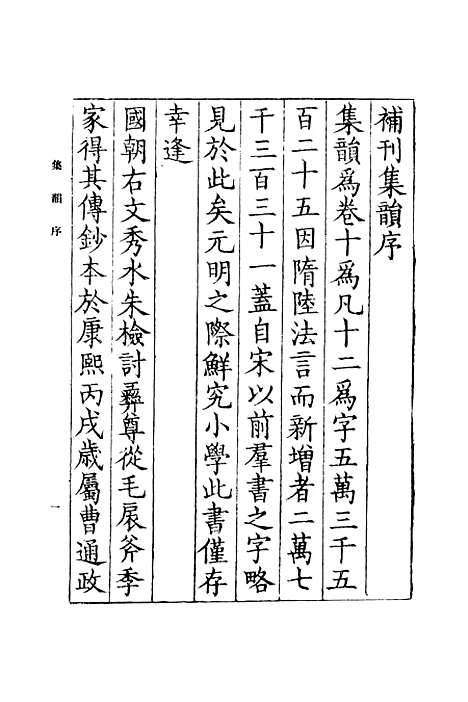 補刊集韻序
集韻爲卷十爲凡十二爲字五萬三千五
百二十五因隋陸法言而新增者二萬七
千三百三十一蓋自宋以前羣書之字略
見於此矣元明之際鮮究小學此書僅存
幸逢
國朝右文秀水朱檢討彝尊從毛扆斧季
家得其傳鈔本於康熙丙戌歲屬曹通政
集韻序
一